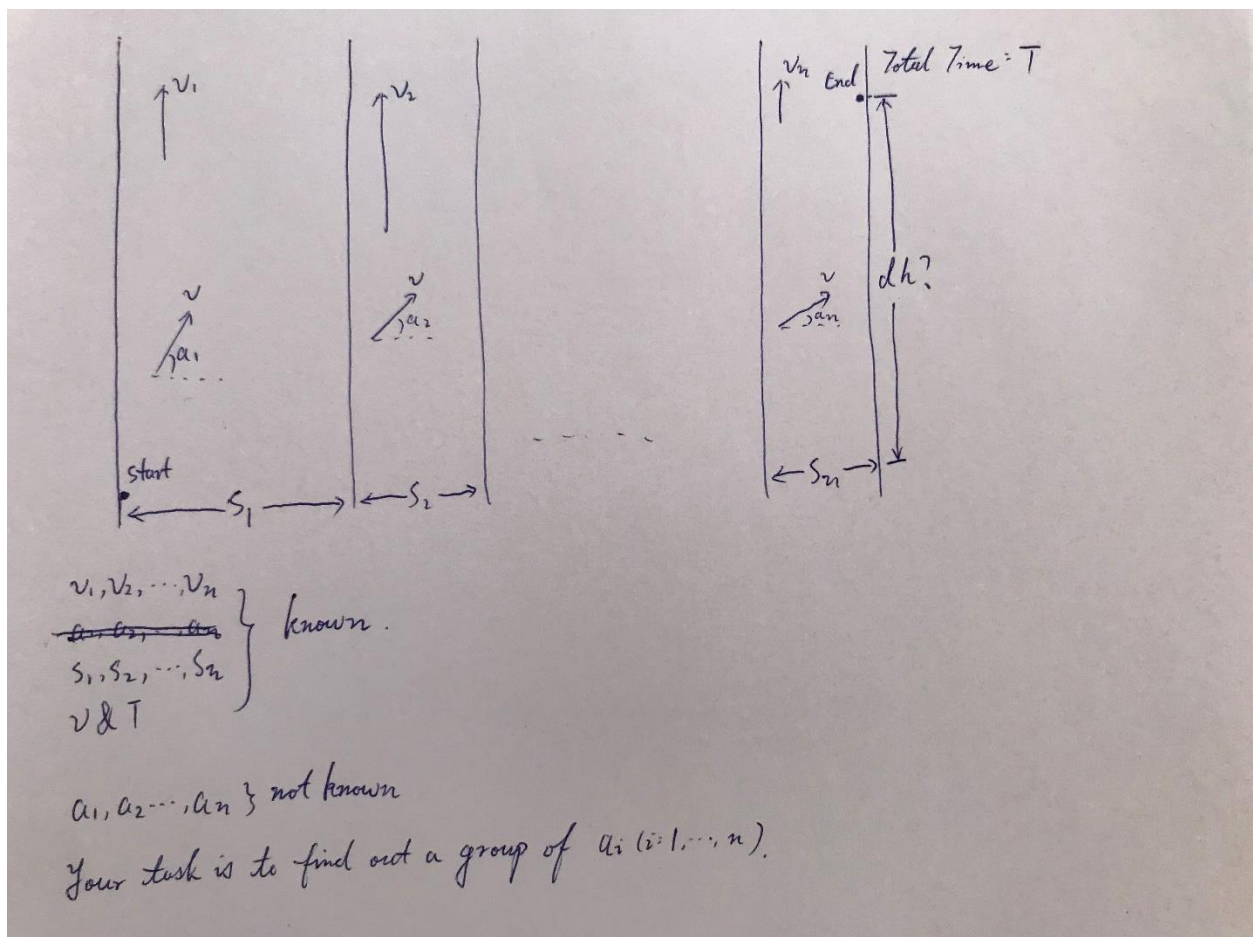 v₁ v₂ vₙ End Total Time = T
v v v dh?
a₁ a₂ aₙ
start
S₁ S₂ Sₙ
v₁, v₂, ..., vₙ
a₁, a₂, ..., aₙ } known.
s₁, s₂, ..., sₙ
v & T
a₁, a₂ ..., aₙ } not known
Your task is to find out a group of aᵢ (i=1, ..., n).